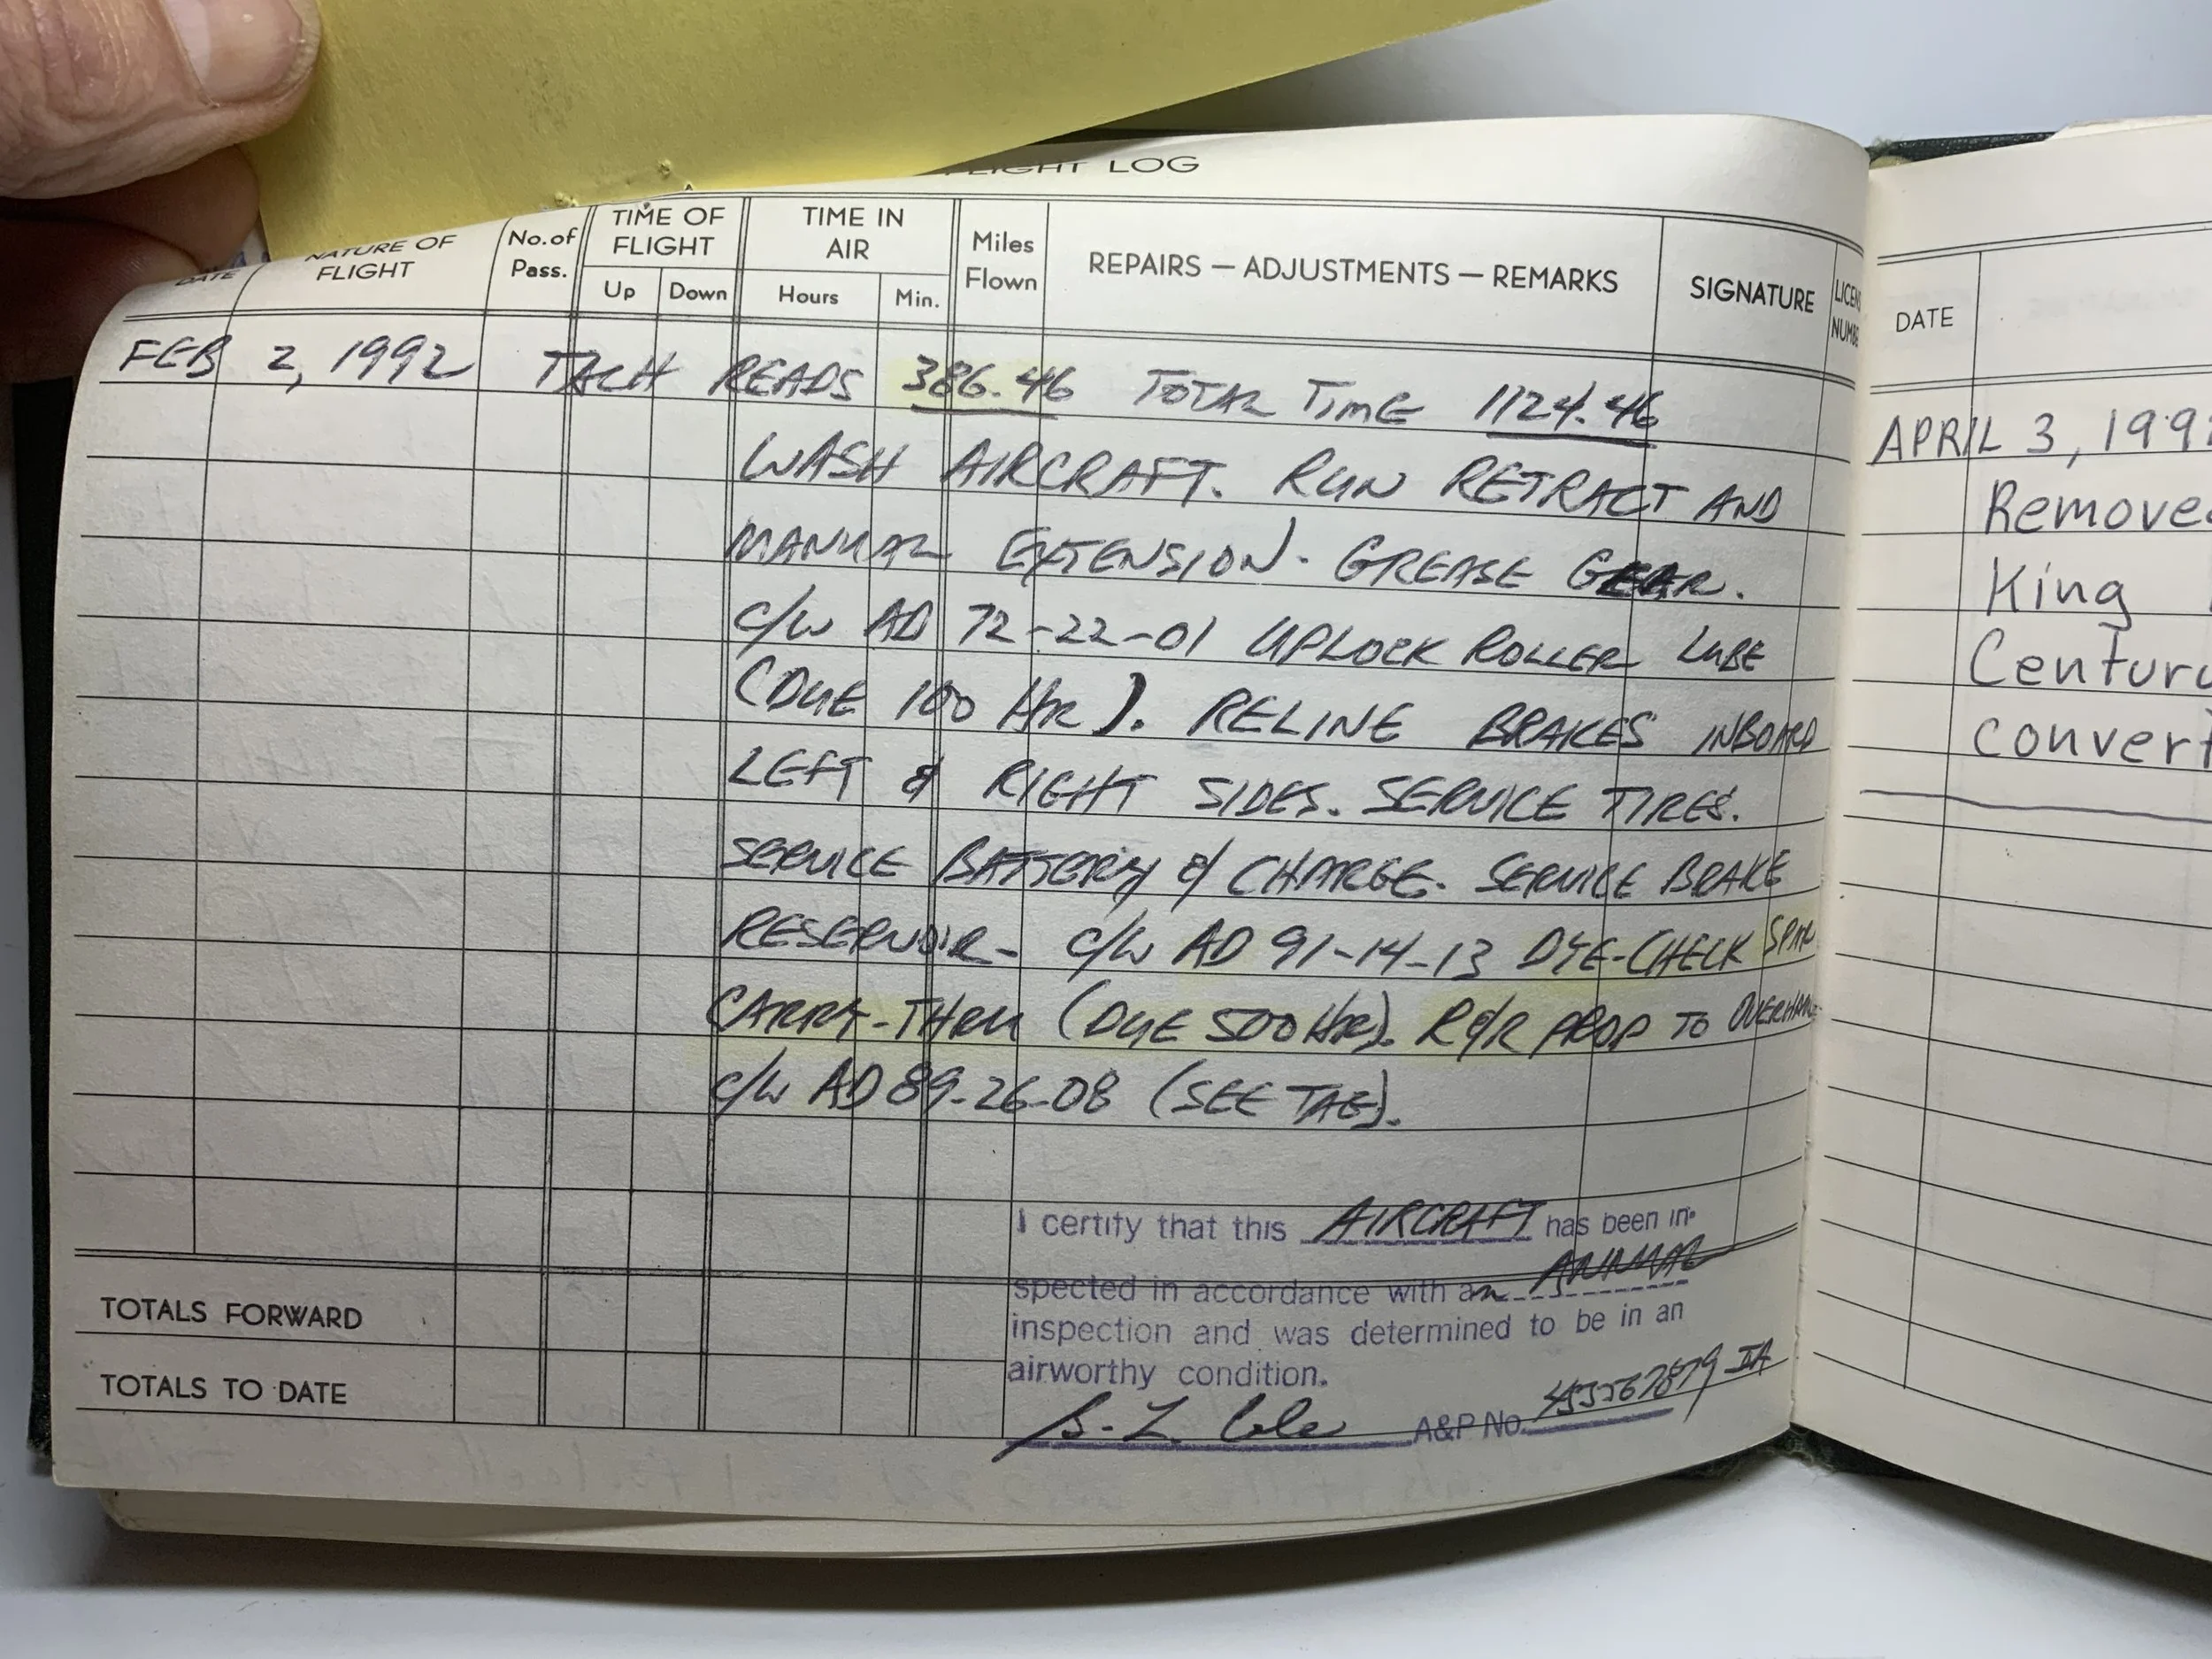 FLIGHT LOG
DATE NATURE OF FLIGHT No. of Pass. TIME OF FLIGHT Up Down TIME IN AIR Hours Min. Miles Flown REPAIRS — ADJUSTMENTS — REMARKS SIGNATURE
FEB 2, 1992 TACH READS 386.46 TOTAL TIME 1124.46
WASH AIRCRAFT. RUN RETRACT AND
MANUAL EXTENSION. GREASE GEAR.
C/W AD 72-22-01 UPLOCK ROLLER LUBE
(DUE 100 HR). RELINE BRAKES INBOARD
LEFT & RIGHT SIDES. SERVICE TIRES.
SERVICE BATTERY & CHARGE. SERVICE BRAKE
RESERVOIR - C/W AD 91-14-13 DYE-CHECK SPAR
CARRY-THRU (DUE 500 HR). R&R PROP TO OVERHAUL
C/W AD 89-26-08 (SEE TAG).
I certify that this AIRCRAFT has been in-
spected in accordance with an ANNUAL
inspection and was determined to be in an
airworthy condition.
A&P No. IA
TOTALS FORWARD
TOTALS TO DATE
DATE
APRIL 3, 199
Remove
King
Century
convert